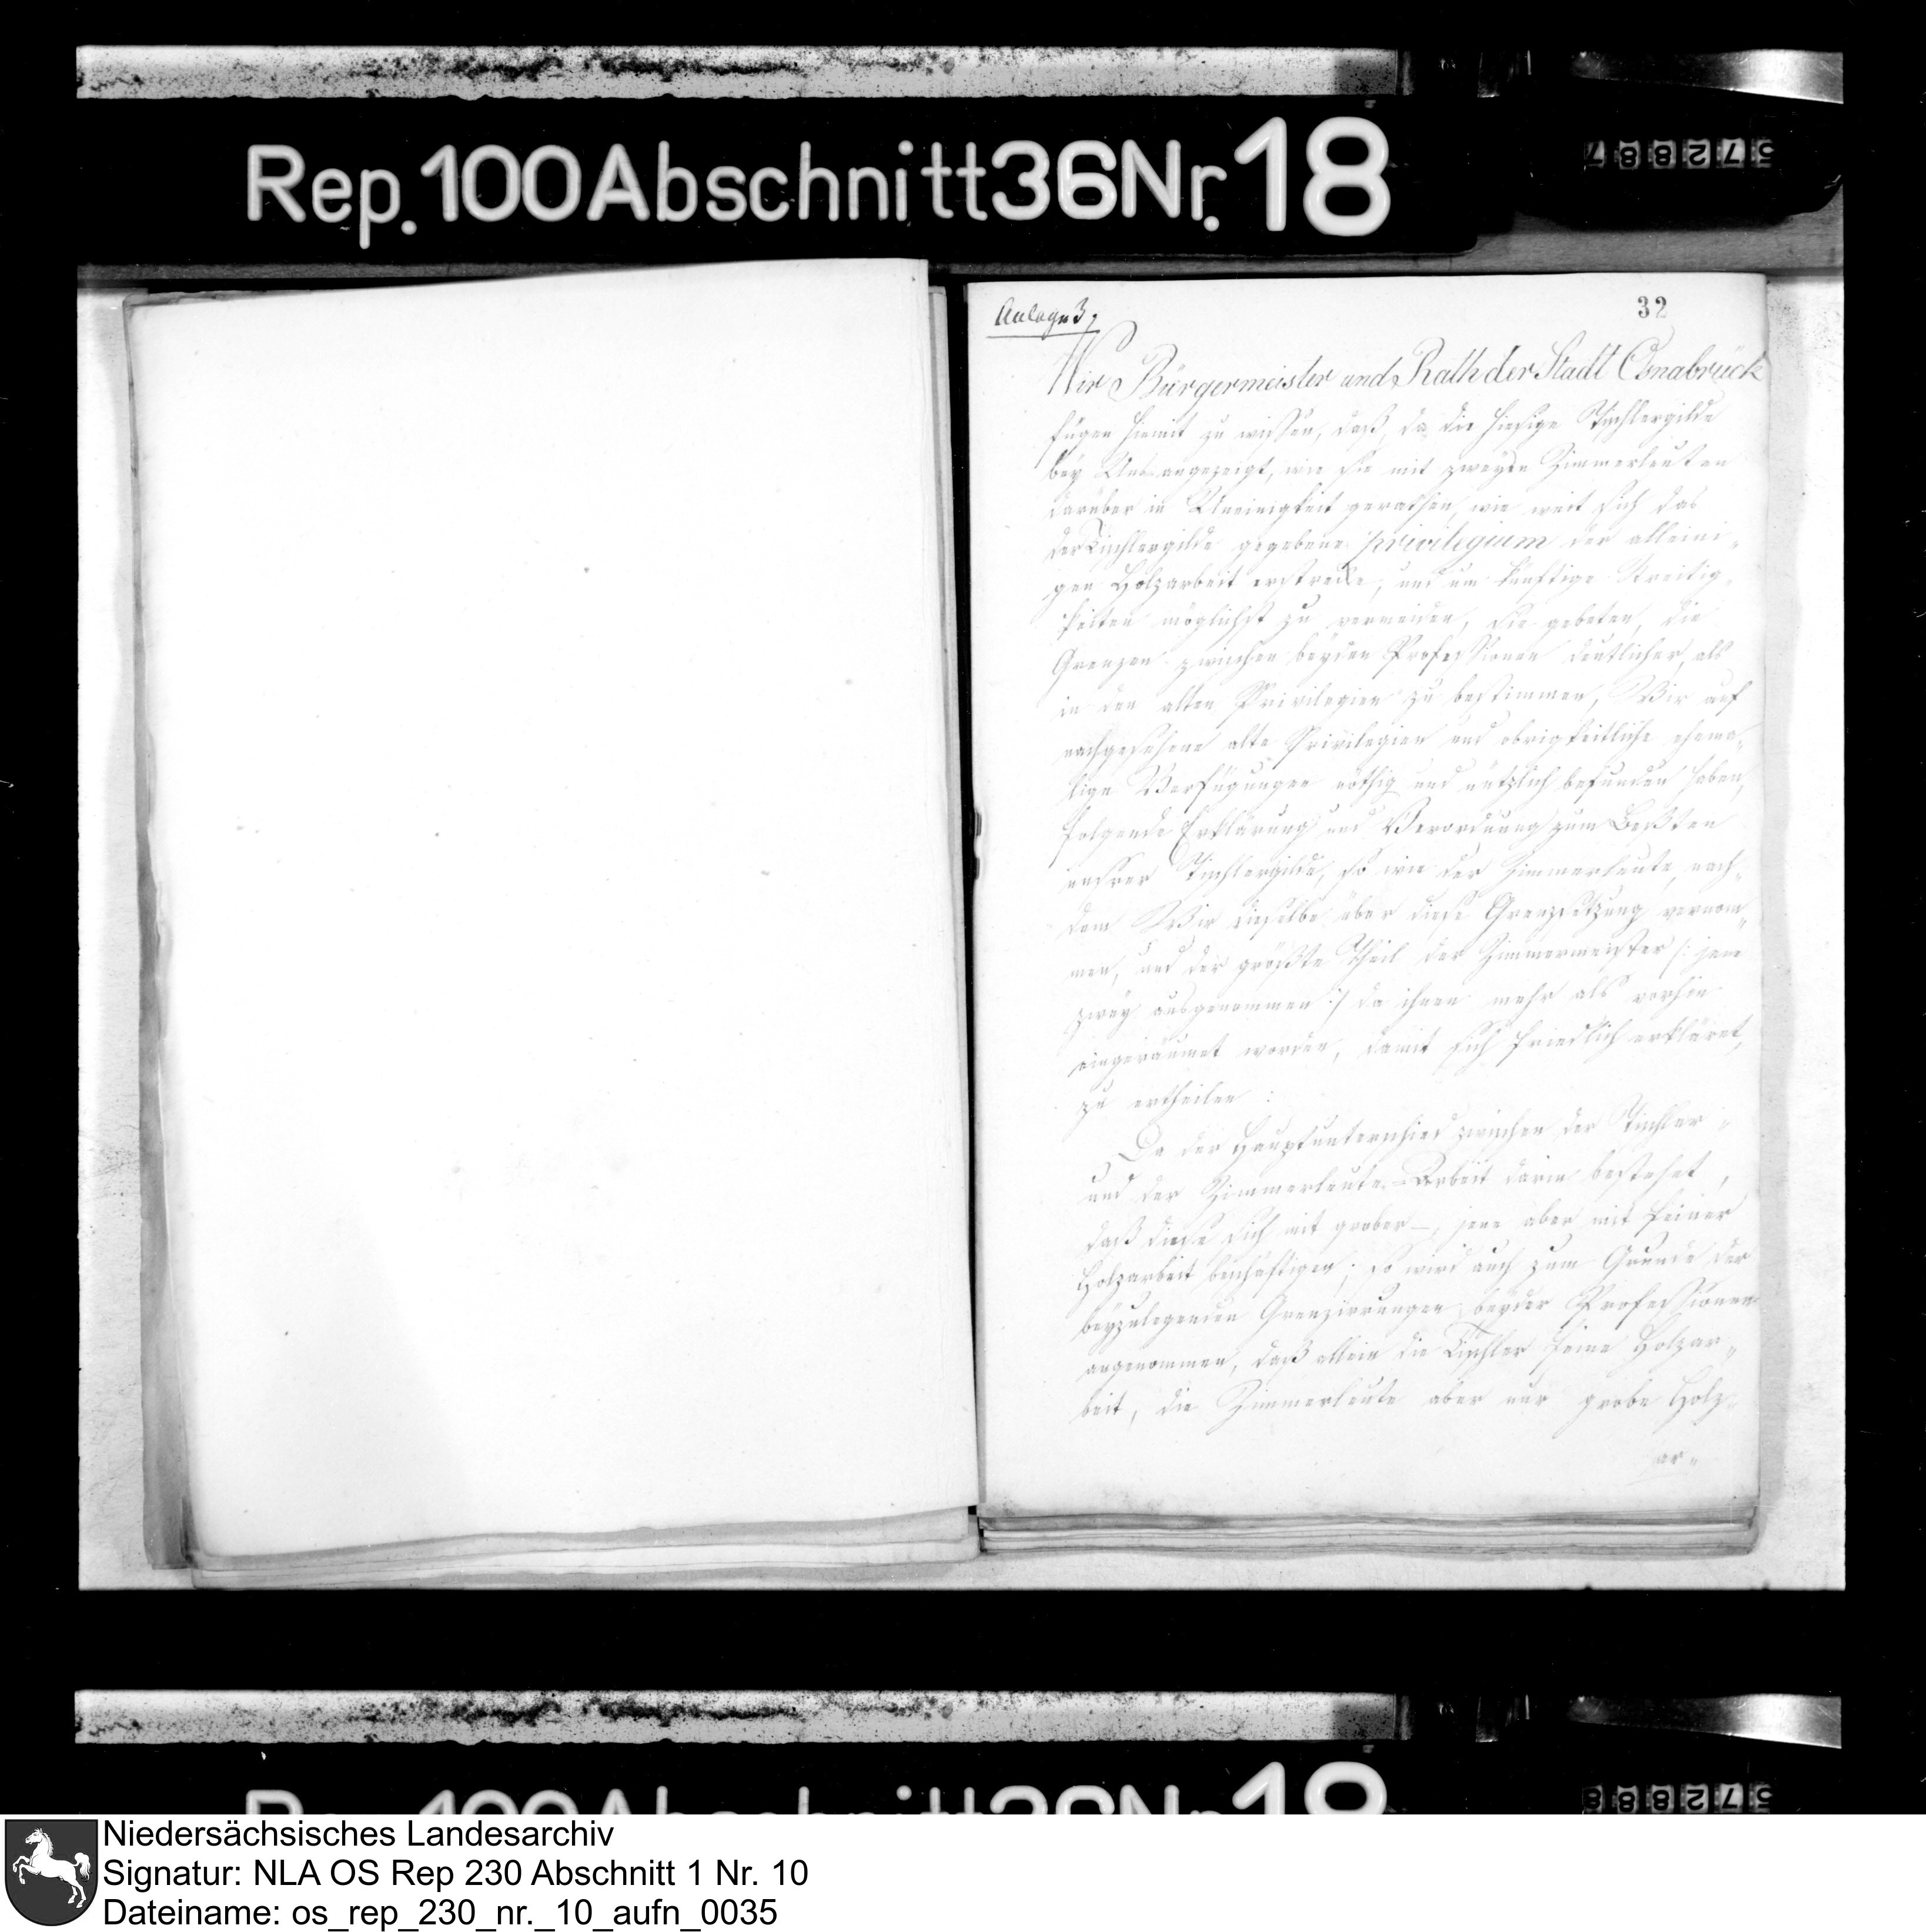 Rep. 100 Abschnitt 36 Nr. 18
572887
Anlage 3,
32
Wir Bürgermeister und Rath der Stadt Osnabrück
fügen hiemit zu wissen, daß, da die hiesige Tischlergilde
bey Uns angezeigt, wie sie mit zweyen Zimmerleuten
darüber in Uneinigkeit gerathen, wie weit sich das
der Tischlergilde gegebene privilegium der alleini-
gen Holzarbeit erstrecke, und um künftige Streitig-
keiten möglichst zu vermeiden, sie gebeten, die
Grenzen zwischen beyden Professionen deutlicher, als
in den alten Privilegien zu bestimmen, Wir auf
nachgesehene alte Privilegien und obrigkeitliche ehema-
lige Verfügungen nöthig und nützlich befunden haben,
folgende Erklärung und Verordnung zum Beßten
unsrer Tischlergilde, so wie der Zimmerleute, nach-
dem Wir dieselbe über diese Grenzsetzung vernom-
men, und der größte Theil der Zimmermeister /: jene
zwey ausgenommen :/ da ihnen mehr als vorhin
eingeräumet worden, damit sich friedlich erkläret,
zu ertheilen :
Da der Hauptunterschied zwischen der Tischler-
und der Zimmerleute-Arbeit darin bestehet,
daß diese sich mit grober-, jene aber mit feiner
Holzarbeit beschäftigen; so wird auch zum Grunde der
beyzulegenden Grenzirrungen beyder Professionen
angenommen, daß allein die Tischler feine Holzar-
beit, die Zimmerleute aber nur grobe Holz-
ar-
572888
Niedersächsisches Landesarchiv
Signatur: NLA OS Rep 230 Abschnitt 1 Nr. 10
Dateiname: os_rep_230_nr._10_aufn_0035